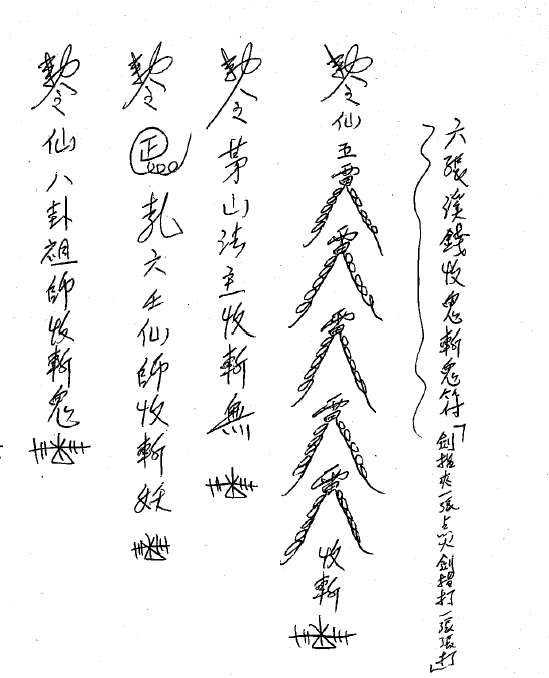 六張溪錢收鬼斬鬼符「劍指夾一張點火劍指打一張張打」
勅令仙五雷雷雷雷雷收斬
勅令茅山法主收斬無
勅令正乾六壬仙師收斬妖
勅令仙八卦祖師收斬鬼